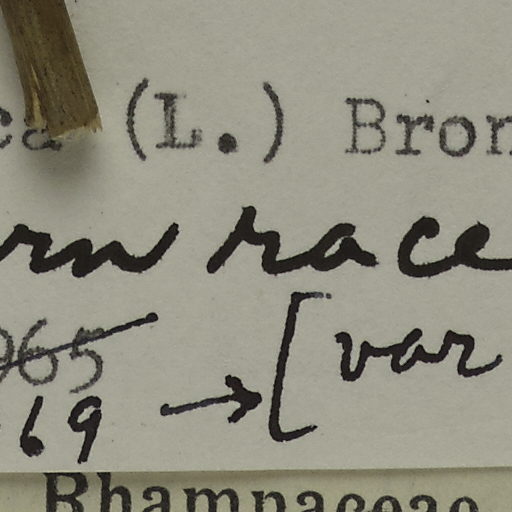 ca (L.) Bron
rn race
965 [var
69 →
Rhamnaceae